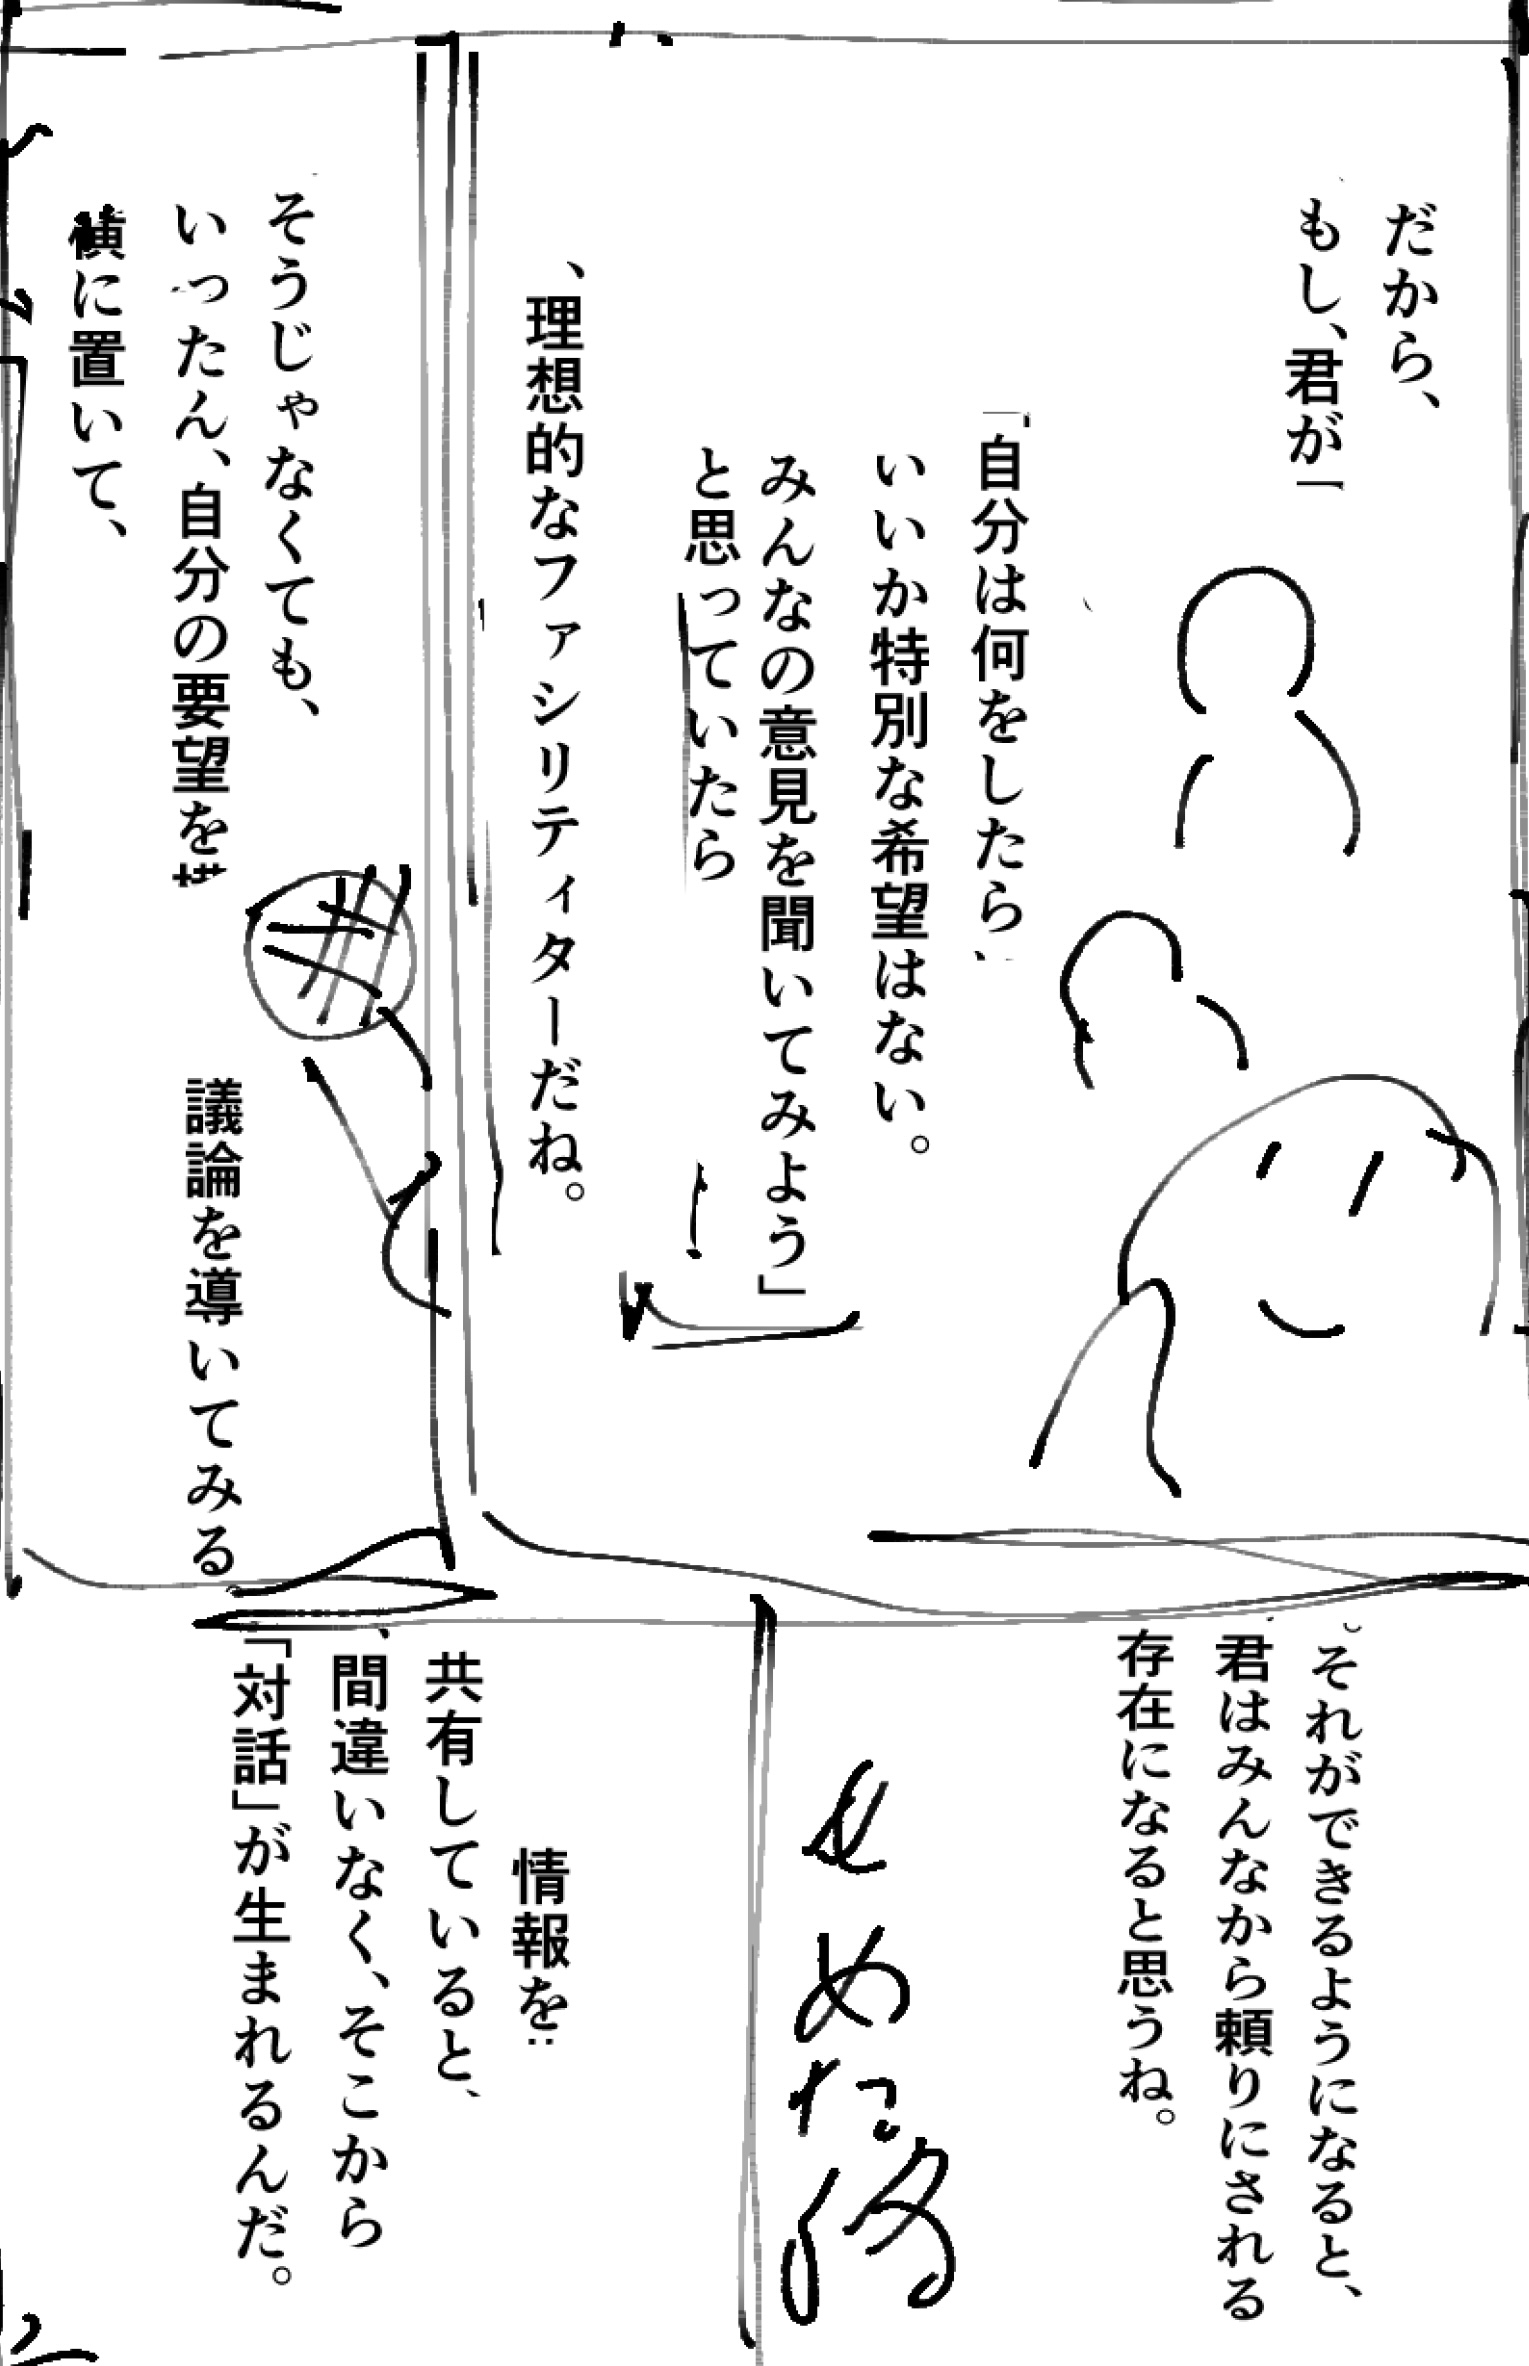 だから、
もし、君が
「自分は何をしたら
いいか特別な希望はない。
みんなの意見を聞いてみよう」
と思っていたら
、理想的なファシリティターだね。
そうじゃなくても、
いったん、自分の要望を
横に置いて、
議論を導いてみる
。それができるようになると、
君はみんなから頼りにされる
存在になると思うね。
情報を
共有していると、
、間違いなく、そこから
「対話」が生まれるんだ。